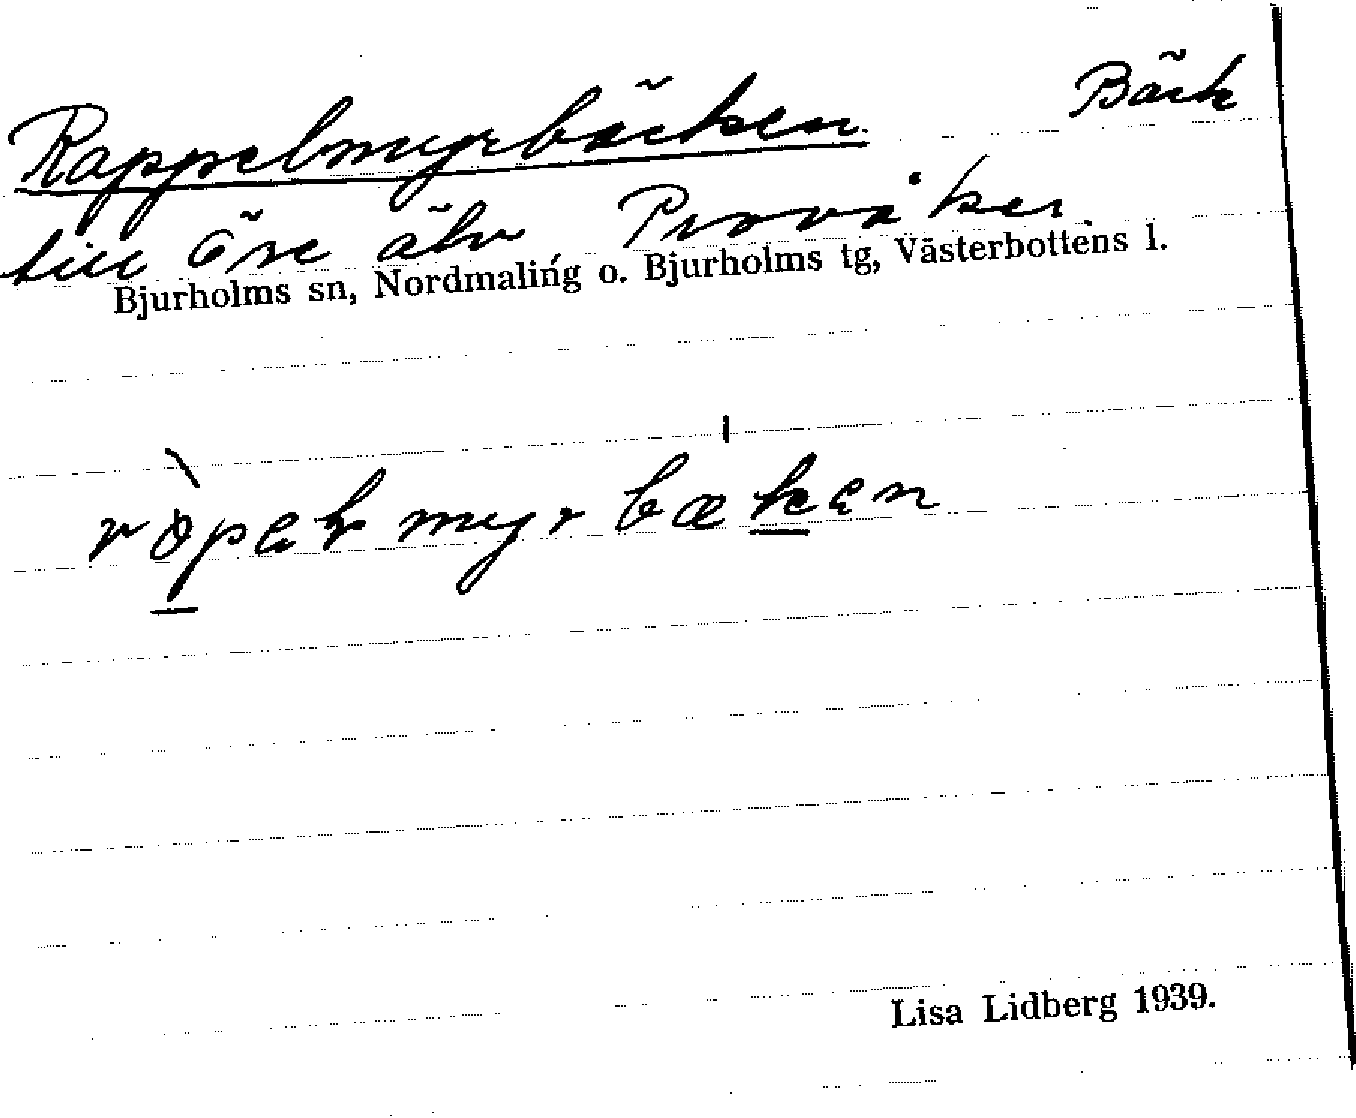 Rappelmyrbäcken Bäck
till Öre älv Provåker
Bjurholms sn, Nordmaling o. Bjurholms tg, Västerbottens l.
Lisa Lidberg 1939.